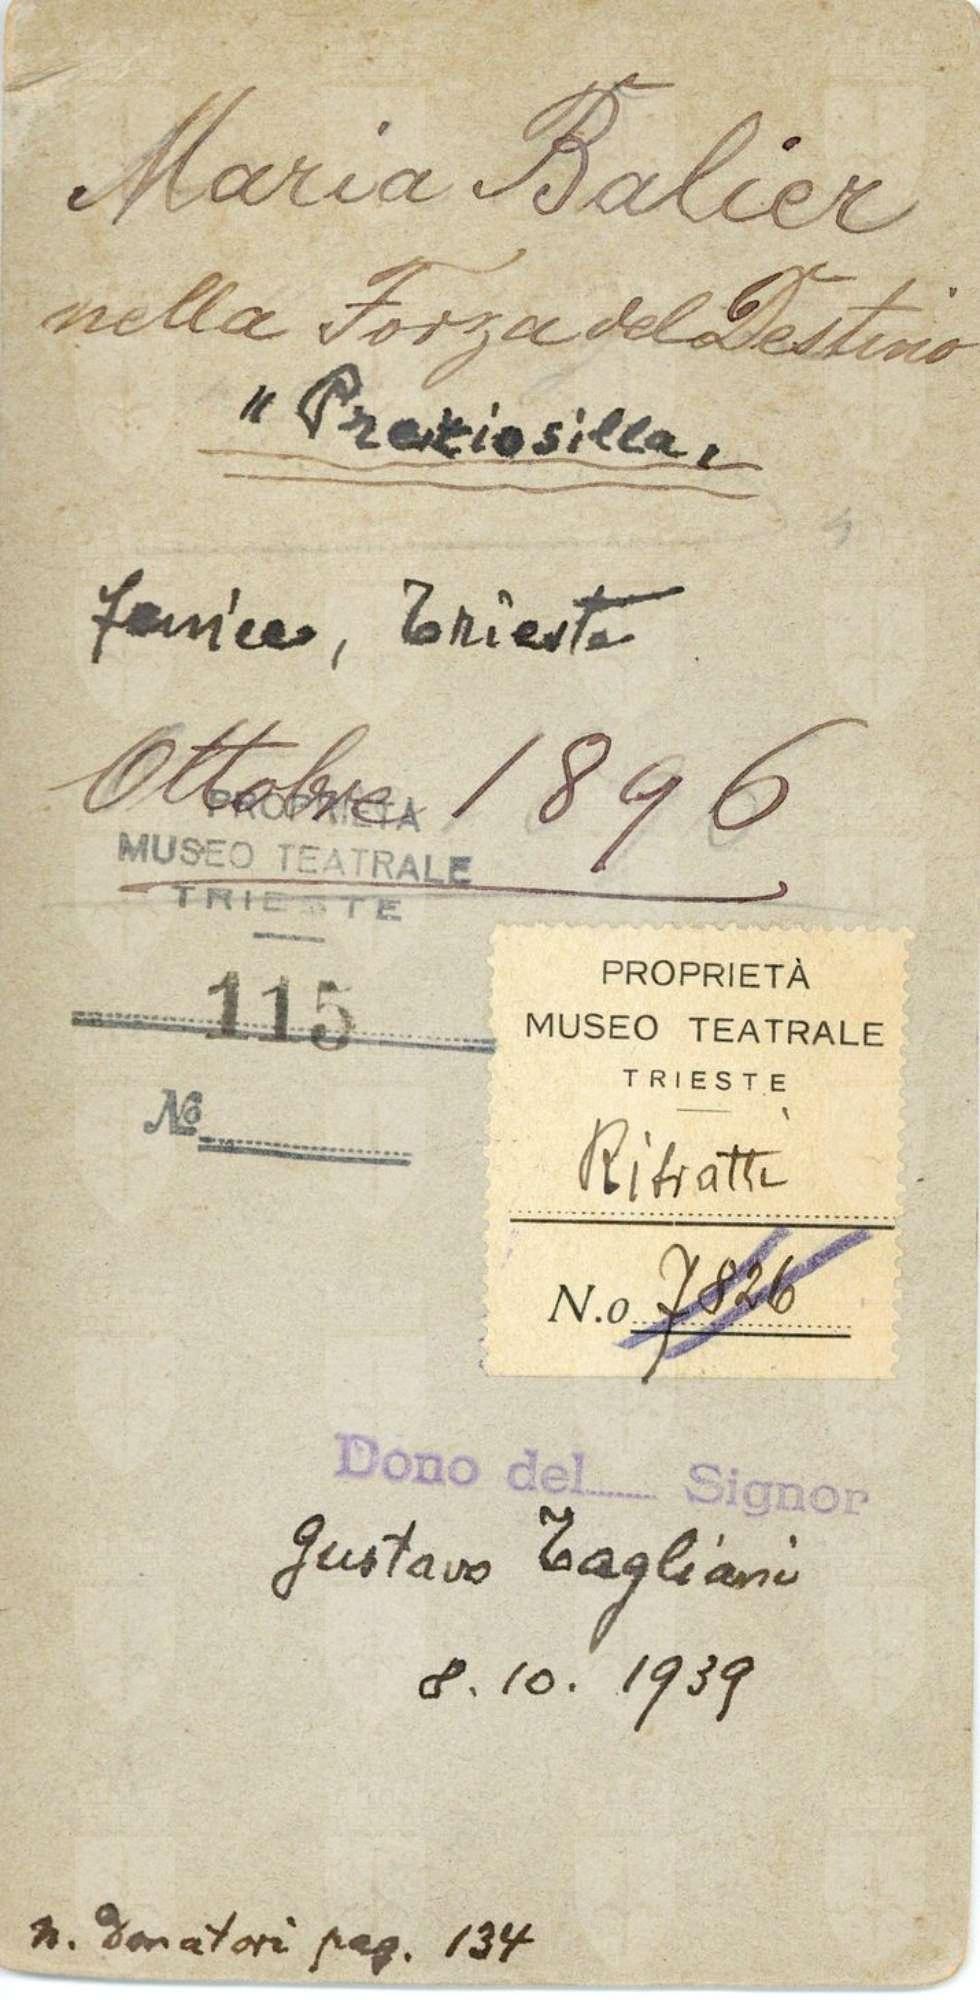 Maria Balier
nella Forza del Destino
"Preziosilla"
Fenice, Trieste
Ottobre 1896
PROPRIETÀ
MUSEO TEATRALE
TRIESTE
115
No
PROPRIETÀ
MUSEO TEATRALE
TRIESTE
Ritratti
N.o 7826
Dono del Signor
Gustavo Tagliani
8. 10. 1939
n. Donatori pag. 134